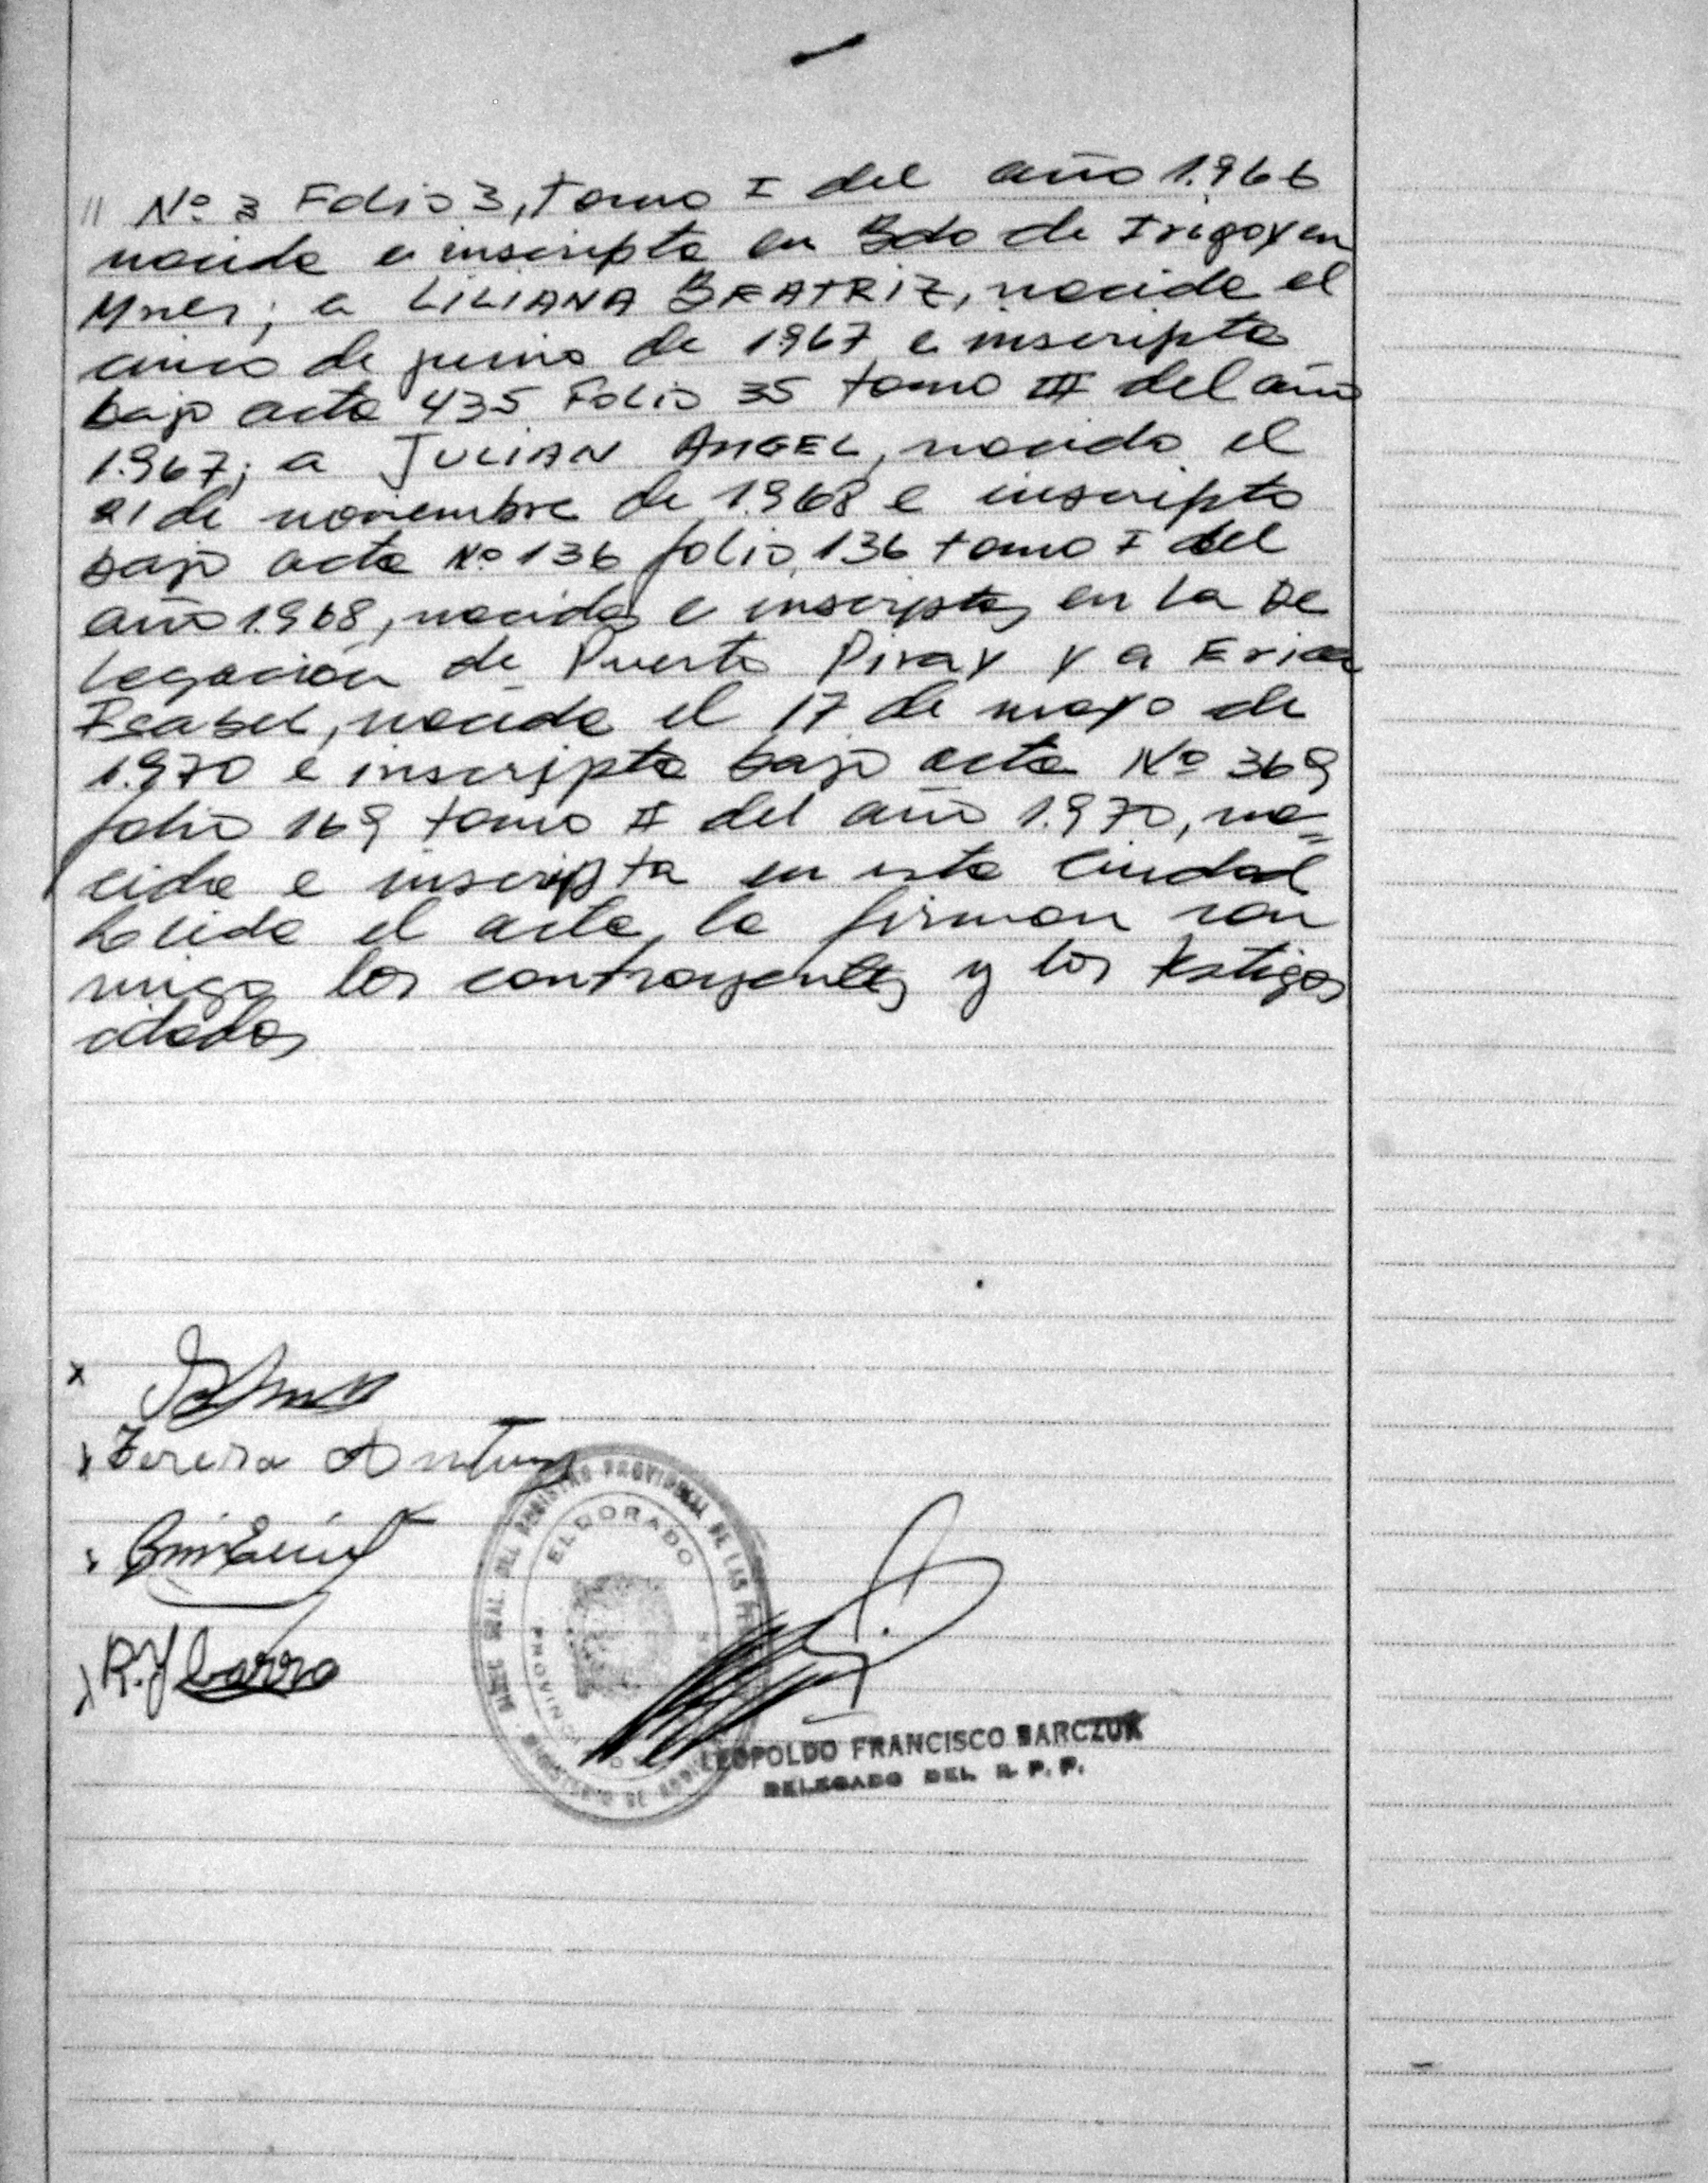 // Nº 3 Folio 3, tomo I del año 1.966
nacida e inscripta en Bdo de Irigoyen
Mnes; a LILIANA BEATRIZ, nacida el
cinco de junio de 1967 e inscripta
bajo acta 435 Folio 35 tomo III del año
1.967; a JULIAN ANGEL, nacido el
21 de noviembre de 1.968 e inscripto
bajo acta Nº 136 folio 136 tomo I del
año 1.968, nacidos e inscriptos en la De
legación de Puerto Piray y a Erica
Isabel, nacida el 17 de mayo de
1.970 e inscripta bajo acta Nº 369
folio 169 tomo II del año 1.970, na=
cida e inscripta en esta Ciudad
Leída el acta, la firman con
migo los contrayentes y los testigos
citados
x
x Teresa Antun
x
x R. Ybarra
REGISTRO PROVINCIAL DE LAS
ELDORADO
LEOPOLDO FRANCISCO BARCZUK
DELEGADO DEL R. P. P.